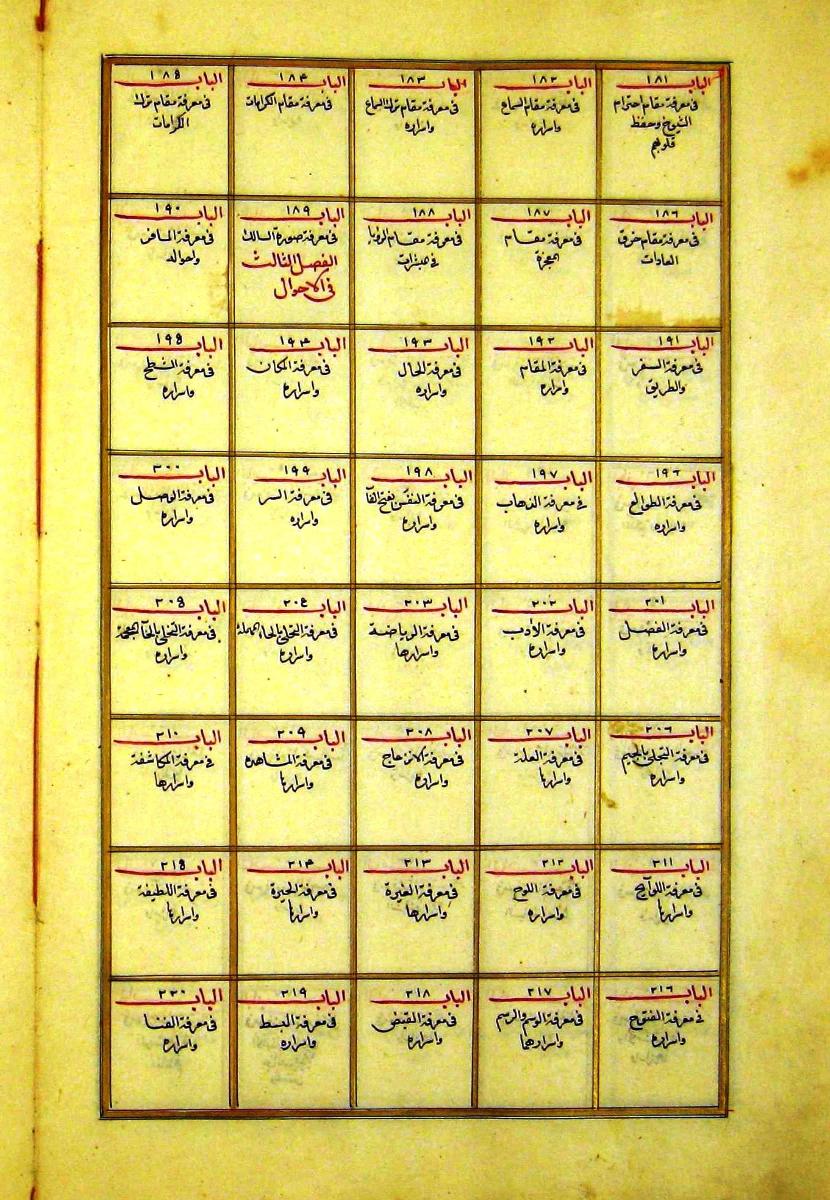 الباب ١٨١
في معرفة مقام احترام
الشيوخ وحفظ
قلوبهم
الباب ١٨٢
في معرفة مقام السماع
واسراره
الباب ١٨٣
في معرفة مقام ترك السماع
واسراره
الباب ١٨٤
في معرفة مقام الكرامات
الباب ١٨٥
في معرفة مقام ترك
الكرامات
الباب ١٨٦
في معرفة مقام خرق
العادات
الباب ١٨٧
في معرفة مقام
المعجزة
الباب ١٨٨
في معرفة مقام الرؤيا
في مبشرات
الباب ١٨٩
في معرفة صورة السالك
الفصل الثالث
في الاحوال
الباب ١٩٠
في معرفة المسافر
واحواله
الباب ١٩١
في معرفة السفر
والطريق
الباب ١٩٢
في معرفة المقام
واسراره
الباب ١٩٣
في معرفة الحال
واسراره
الباب ١٩٤
في معرفة المكان
واسراره
الباب ١٩٥
في معرفة الشطح
واسراره
الباب ١٩٦
في معرفة الطوالع
واسراره
الباب ١٩٧
في معرفة الذهاب
واسراره
الباب ١٩٨
في معرفة النفَس بفتح الفآ
واسراره
الباب ١٩٩
في معرفة السر
واسراره
الباب ٢٠٠
في معرفة الوصل
واسراره
الباب ٢٠١
في معرفة الفصل
واسراره
الباب ٢٠٢
في معرفة الأدب
واسراره
الباب ٢٠٣
في معرفة الرياضة
واسرارها
الباب ٢٠٤
في معرفة التحلي بالحاء المهملة
واسراره
الباب ٢٠٥
في معرفة التخلي بالخآ المعجمة
واسراره
الباب ٢٠٦
في معرفة التجلي بالجيم
واسراره
الباب ٢٠٧
في معرفة العلة
واسرارها
الباب ٢٠٨
في معرفة الانزعاج
واسراره
الباب ٢٠٩
في معرفة المشاهده
واسرارها
الباب ٢١٠
في معرفة المكاشفة
واسرارها
الباب ٢١١
في معرفة اللوآيح
واسرارها
الباب ٢١٢
في معرفة اللوح
واسراره
الباب ٢١٣
في معرفة الغيرة
واسرارها
الباب ٢١٤
في معرفة الحيرة
واسرارها
الباب ٢١٥
في معرفة اللطيفة
واسرارها
الباب ٢١٦
في معرفة الفتوح
واسراره
الباب ٢١٧
في معرفة الوسم والرسم
واسرارهما
الباب ٢١٨
في معرفة القبض
واسراره
الباب ٢١٩
في معرفة البسط
واسراره
الباب ٢٢٠
في معرفة الفنا
واسراره